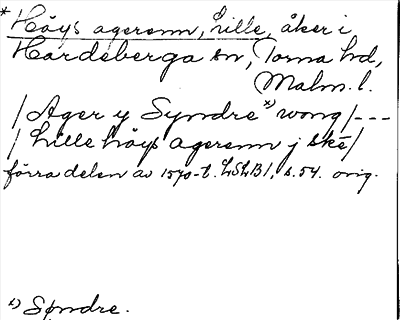 * Höys agerenn, Lille, åker i
Hardeberga sn, Torna hd,
Malm. l.
/Ager y Syndre x) wong/---
/Lille höys agerenn j skē/
förra delen av 1570-t. LSLB1, s. 54. orig.
x) Sÿndre.